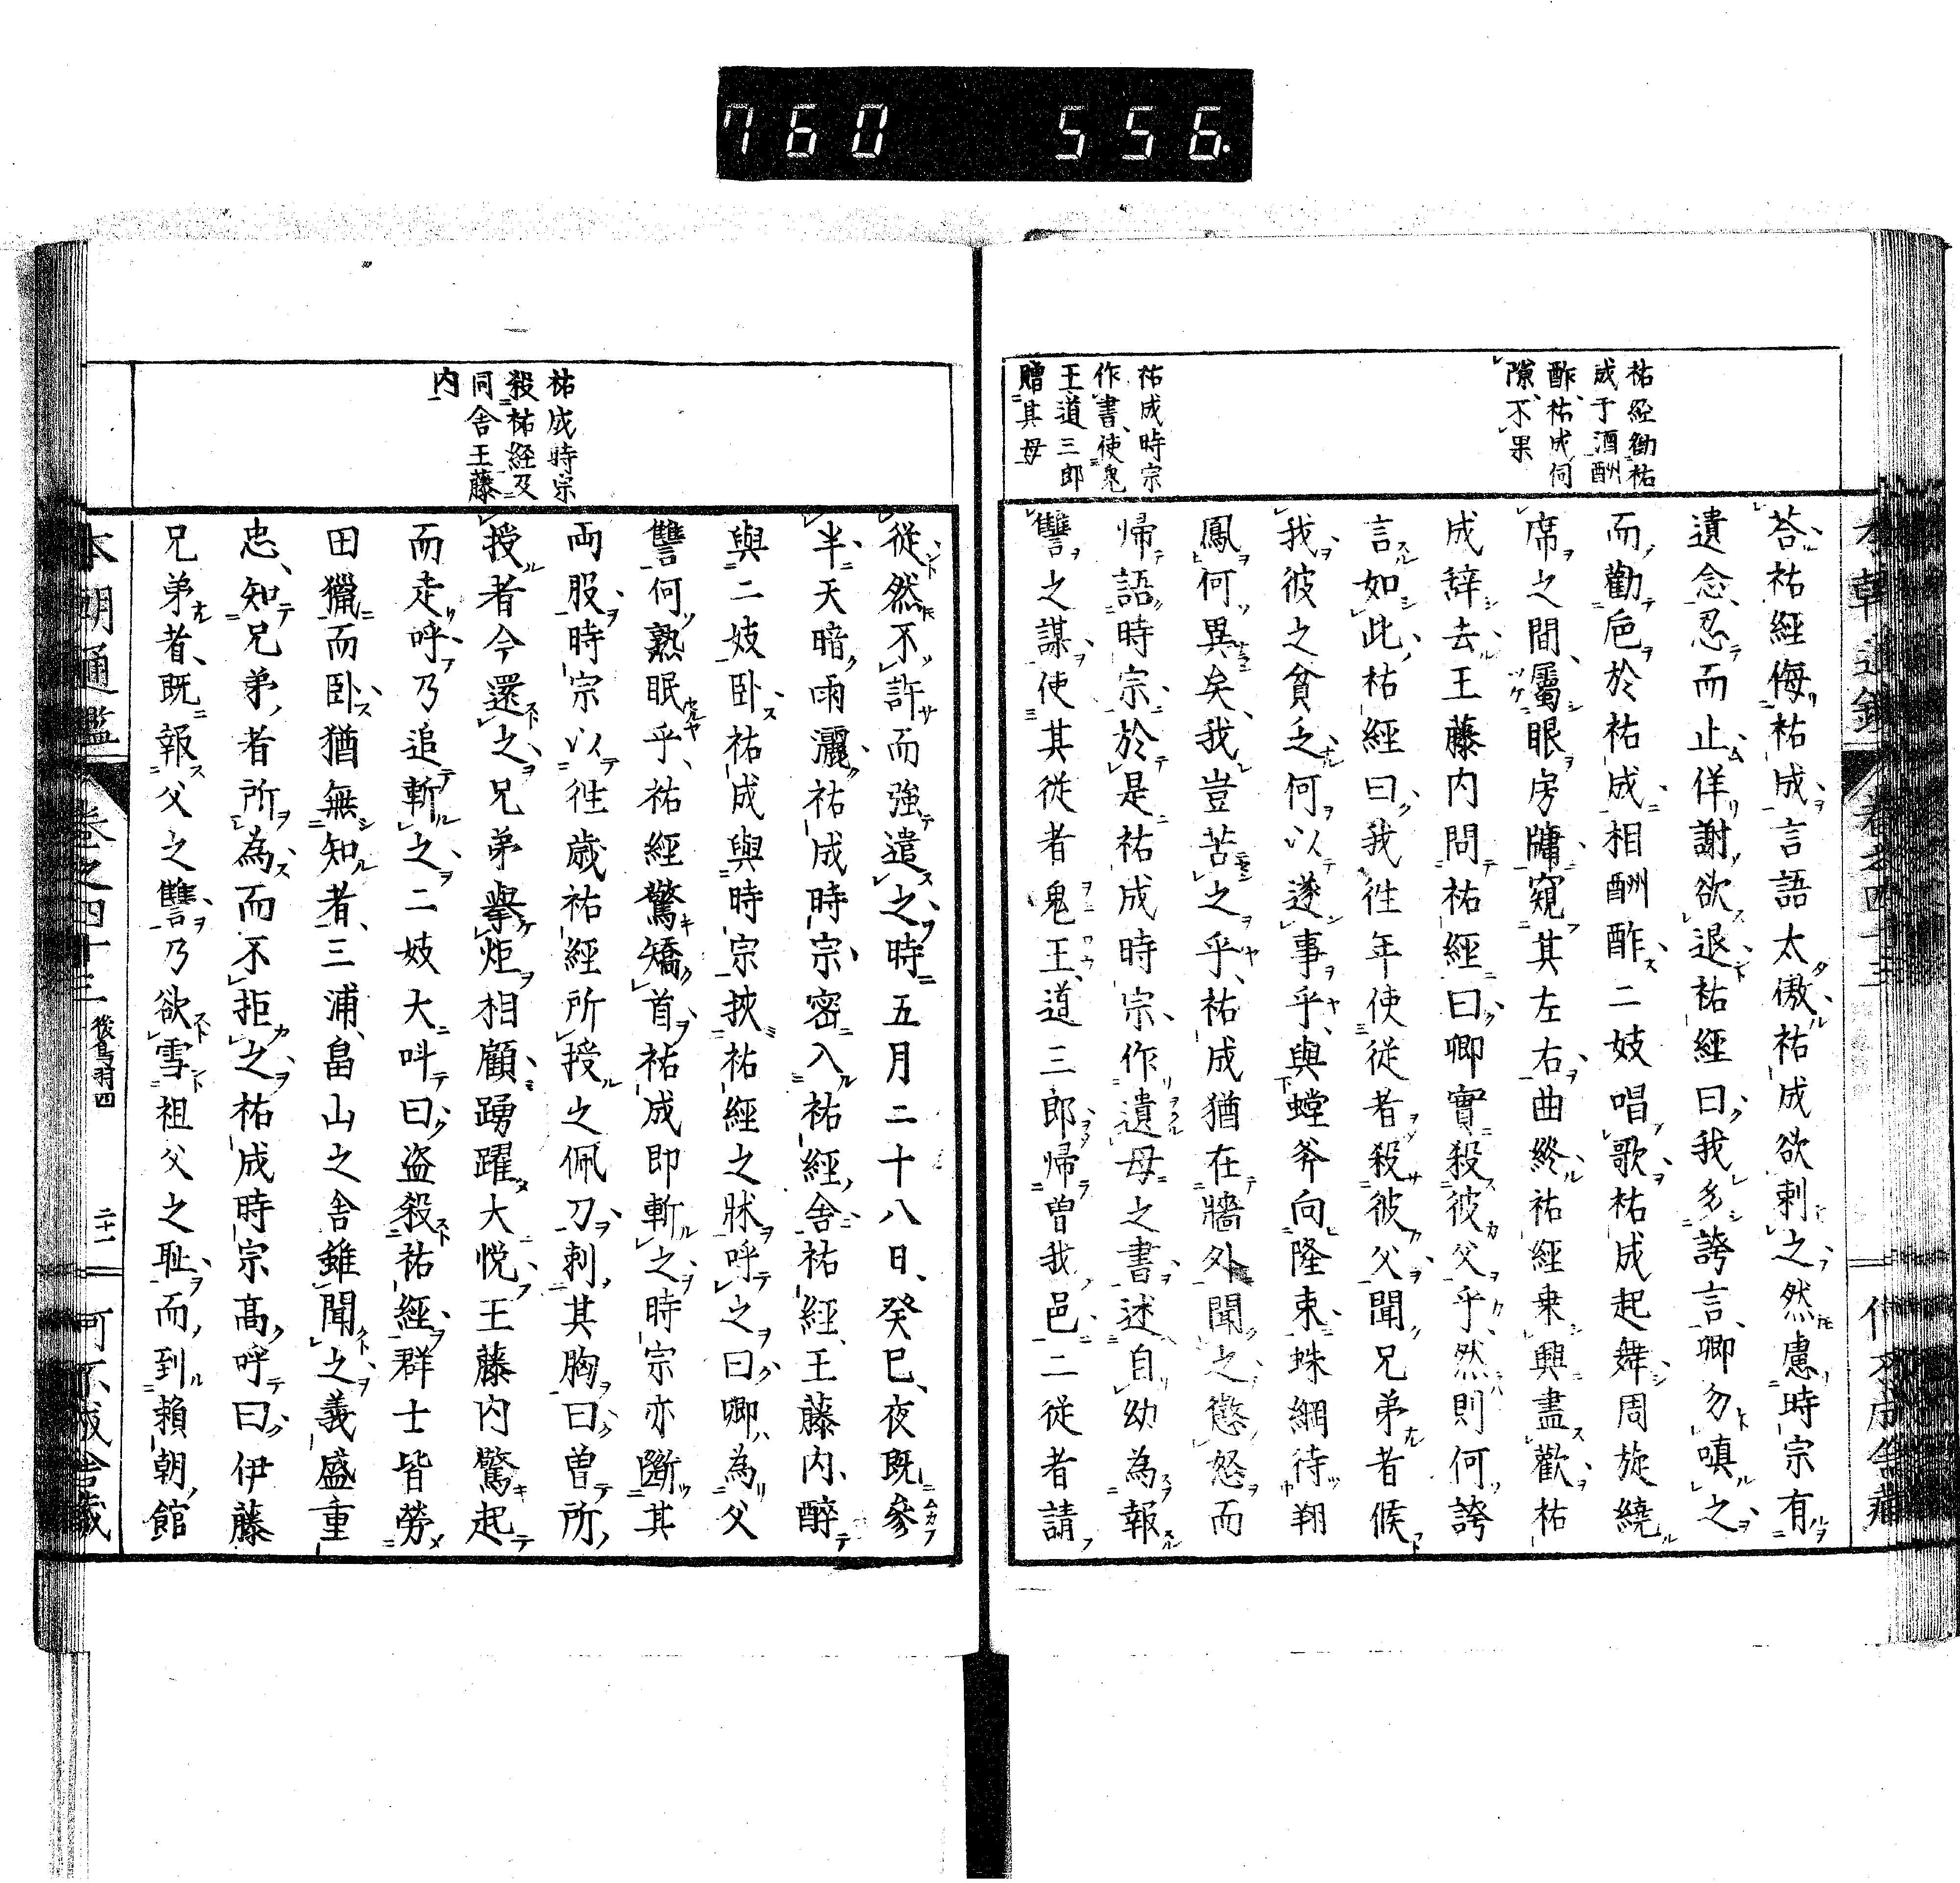 760 556.
祐経勧祐
成于酒酬
酢、祐成伺
隙、不果
祐成時宗
作書、使鬼
王道三郎
贈其母
荅祐経侮祐成言語太傲祐成欲刺之然慮時宗有
遺念忍而止佯謝欲退祐経曰我多誇言卿勿嗔之
而勸巵於祐成相酬酢二妓唱歌祐成起舞周旋繞
席之間屬眼房牗窺其左右曲終祐経乗興盡歡祐
成辞去王藤内問祐経曰卿實殺彼父乎然則何誇
言如此祐經曰我徃年使従者殺彼父聞兄弟者候
我彼之貧乏何以遂事乎與螳斧向隆車蛛網待翔
鳳何異矣我豈苦之乎祐成猶在牆外聞之懲怒而
帰語時宗於是祐成時宗作遺母之書述自幼為報
讐之謀使其従者鬼王道三郎帰曽我邑二従者請
従然不許而強遣之時五月二十八日癸巳夜既參
半天暗雨灑祐成時宗密入祐經舎祐經王藤内醉
與二妓卧祐成與時宗挾祐經之牀呼之曰卿為父
讐何熟眠乎祐經驚矯首祐成即斬之時宗亦斷其
両股時宗以徃歳祐經所授之佩刀刺其胸曰曽所
授者今還之兄弟擧炬相顧踴躍大悦王藤内驚起
而走呼乃追斬之二妓大呌曰盗殺祐經群士皆勞
田獵而卧猶無知者三浦畠山之舎雖聞之義盛重
忠知兄弟者所為而不拒之祐成時宗髙呼曰伊藤
兄弟者既報父之讐乃欲雪祖父之耻而到賴朝館
祐成時宗
殺祐経及
同舎王藤
内
本朝通鑑 卷之四十三 後鳥羽四 二十一